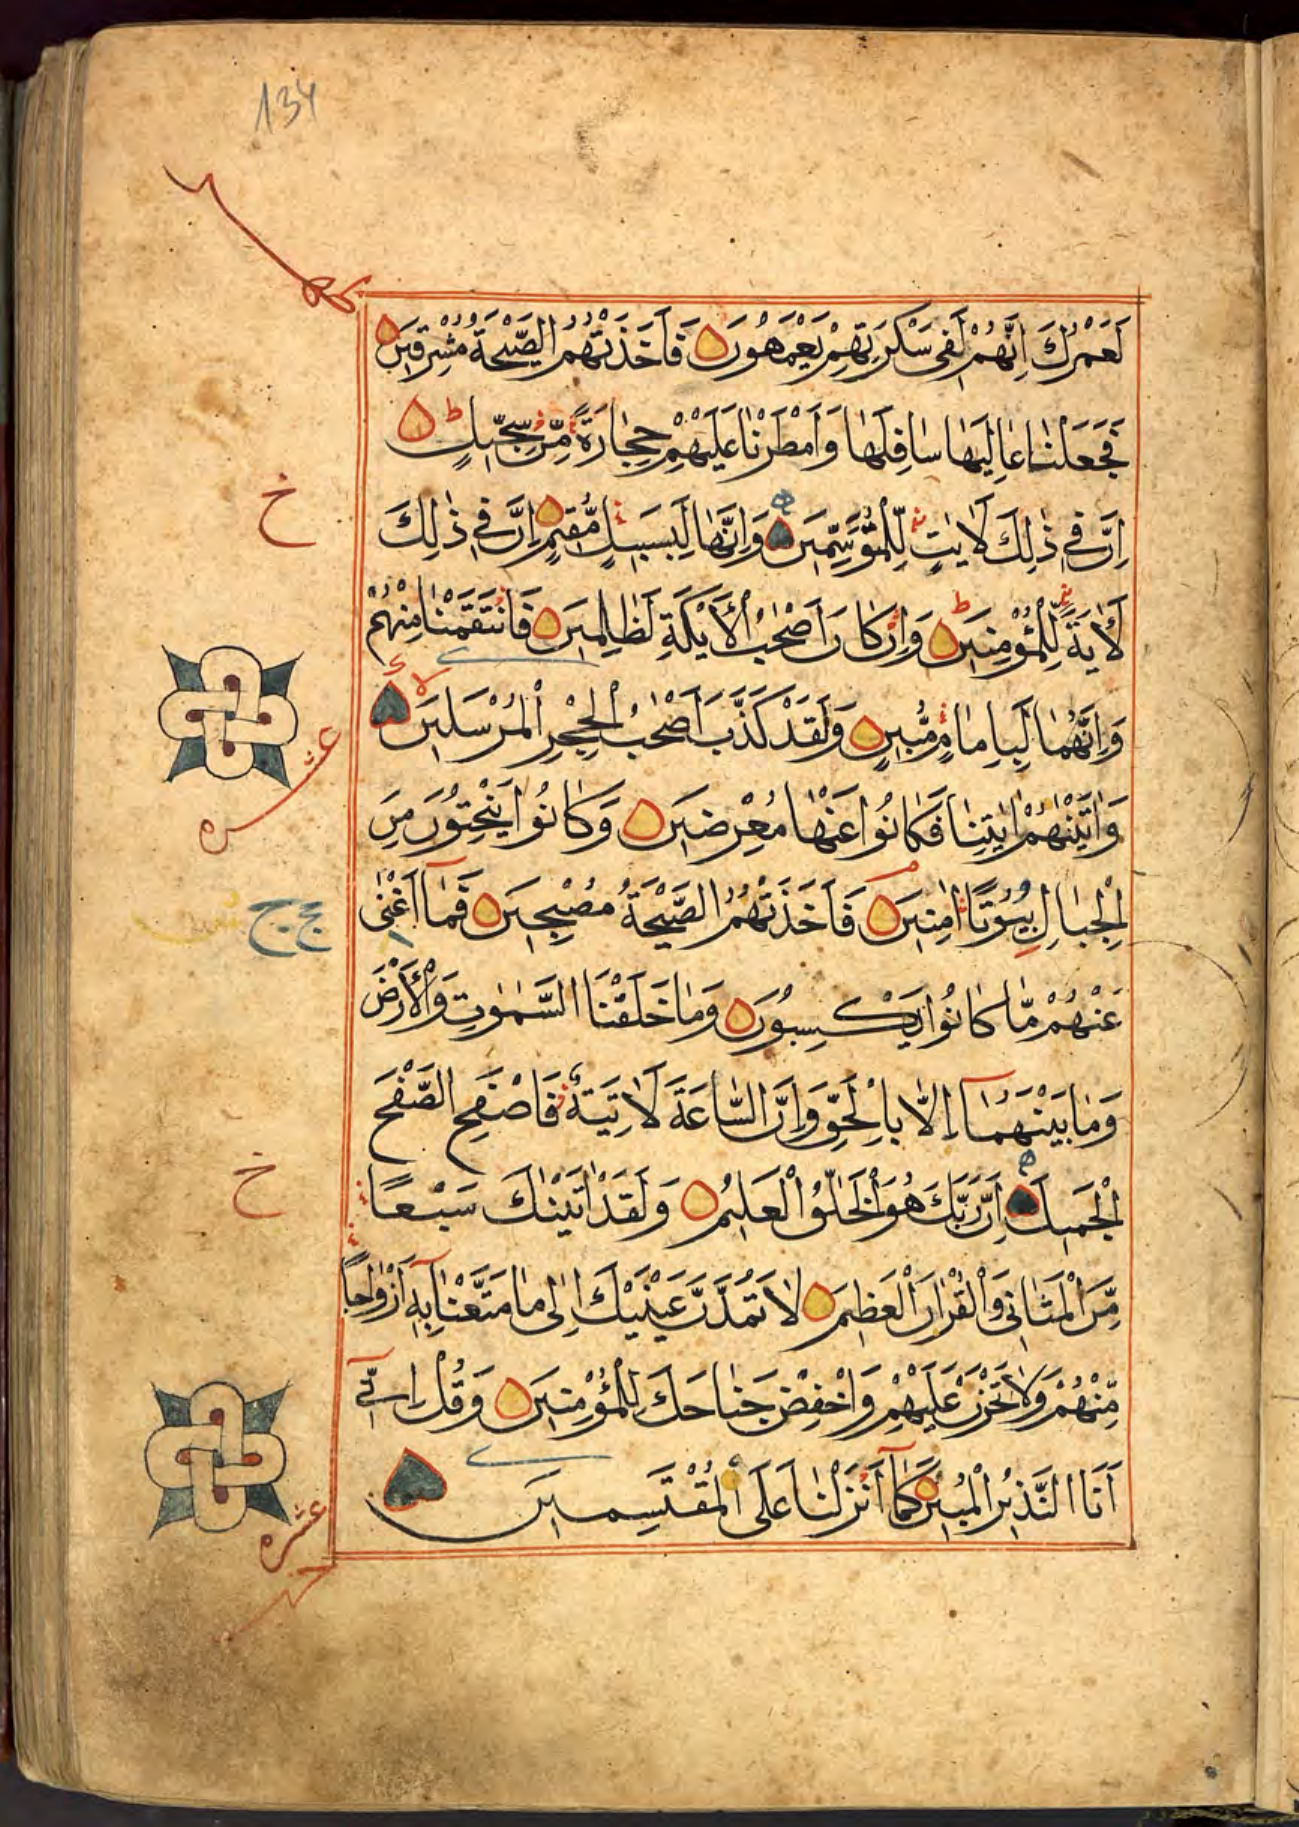 134
لَعَمْرُكَ اِنَّهُمْ لَفِى سَكْرَتِهِمْ يَعْمَهُونَ فَاَخَذَتْهُمُ الصَّيْحَةُ مُشْرِقِينَ
فَجَعَلْنَا عَالِيَهَا سَافِلَهَا وَاَمْطَرْنَا عَلَيْهِمْ حِجَارَةً مِّنْ سِجِّيلٍ ط
اِنَّ فِى ذٰلِكَ لَاٰيٰتٍ لِّلْمُتَوَسِّمِينَ وَاِنَّهَا لَبِسَبِيلٍ مُّقِيمٍ اِنَّ فِى ذٰلِكَ
خ
لَاٰيَةً لِّلْمُؤْمِنِينَ ط وَاِنْ كَانَ اَصْحٰبُ الْاَيْكَةِ لَظَالِمِينَ فَانْتَقَمْنَا مِنْهُمْ
وَاِنَّهُمَا لَبِاِمَامٍ مُّبِينٍ وَلَقَدْ كَذَّبَ اَصْحٰبُ الْحِجْرِ الْمُرْسَلِينَ لا
عشره
وَاٰتَيْنٰهُمْ اٰيٰتِنَا فَكَانُوا عَنْهَا مُعْرِضِينَ وَكَانُوا يَنْحِتُونَ مِنَ
الْجِبَالِ بُيُوتًا اٰمِنِينَ فَاَخَذَتْهُمُ الصَّيْحَةُ مُصْبِحِينَ فَمَا اَغْنٰى
عَنْهُمْ مَّا كَانُوا يَكْسِبُونَ وَمَا خَلَقْنَا السَّمٰوٰتِ وَالْاَرْضَ
وَمَا بَيْنَهُمَا اِلَّا بِالْحَقِّ وَاِنَّ السَّاعَةَ لَاٰتِيَةٌ فَاصْفَحِ الصَّفْحَ
خ
الْجَمِيلَ اِنَّ رَبَّكَ هُوَ الْخَلّٰقُ الْعَلِيمُ وَلَقَدْ اٰتَيْنٰكَ سَبْعًا
مِّنَ الْمَثَانِى وَالْقُرْاٰنَ الْعَظِيمَ لَا تَمُدَّنَّ عَيْنَيْكَ اِلٰى مَا مَتَّعْنَا بِهِ اَزْوَاجًا
مِّنْهُمْ وَلَا تَحْزَنْ عَلَيْهِمْ وَاخْفِضْ جَنَاحَكَ لِلْمُؤْمِنِينَ وَقُلْ اِنِّى
اَنَا النَّذِيرُ الْمُبِينُ كَمَا اَنْزَلْنَا عَلَى الْمُقْتَسِمِينَ
عشره